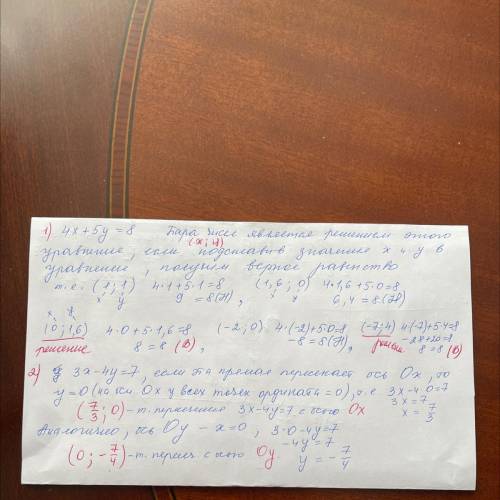 1) 4x+5y=8 Пара чисел является решением этого
(x; y)
уравнение, если подставив значение x и y в
уравнение, получим верное равенство
т.е. (1; 1) 4·1+5·1=8 (1,6; 0) 4·1,6+5·0=8
x y 9=8(Н), x y 6,4=8(Н)
x y
(0; 1,6) 4·0+5·1,6=8 (-2; 0) 4·(-2)+5·0=8 (-7; 4) 4·(-7)+5·4=8
решение 8=8 (В), -8=8(Н), решение -28+20=8
8=8 (В)
2) 3x-4y=7, если эта прямая пересекает ось Ox, то
y=0 (на оси Ox у всех точек ордината=0), т.е. 3x-4·0=7
3x=7
(7/3; 0) - т. пересечения 3x-4y=7 с осью Ox x=7/3
Аналогично, ось Oy - x=0, 3·0-4y=7
-4y=7
(0; -7/4) - т. перес. с осью Oy. y=-7/4